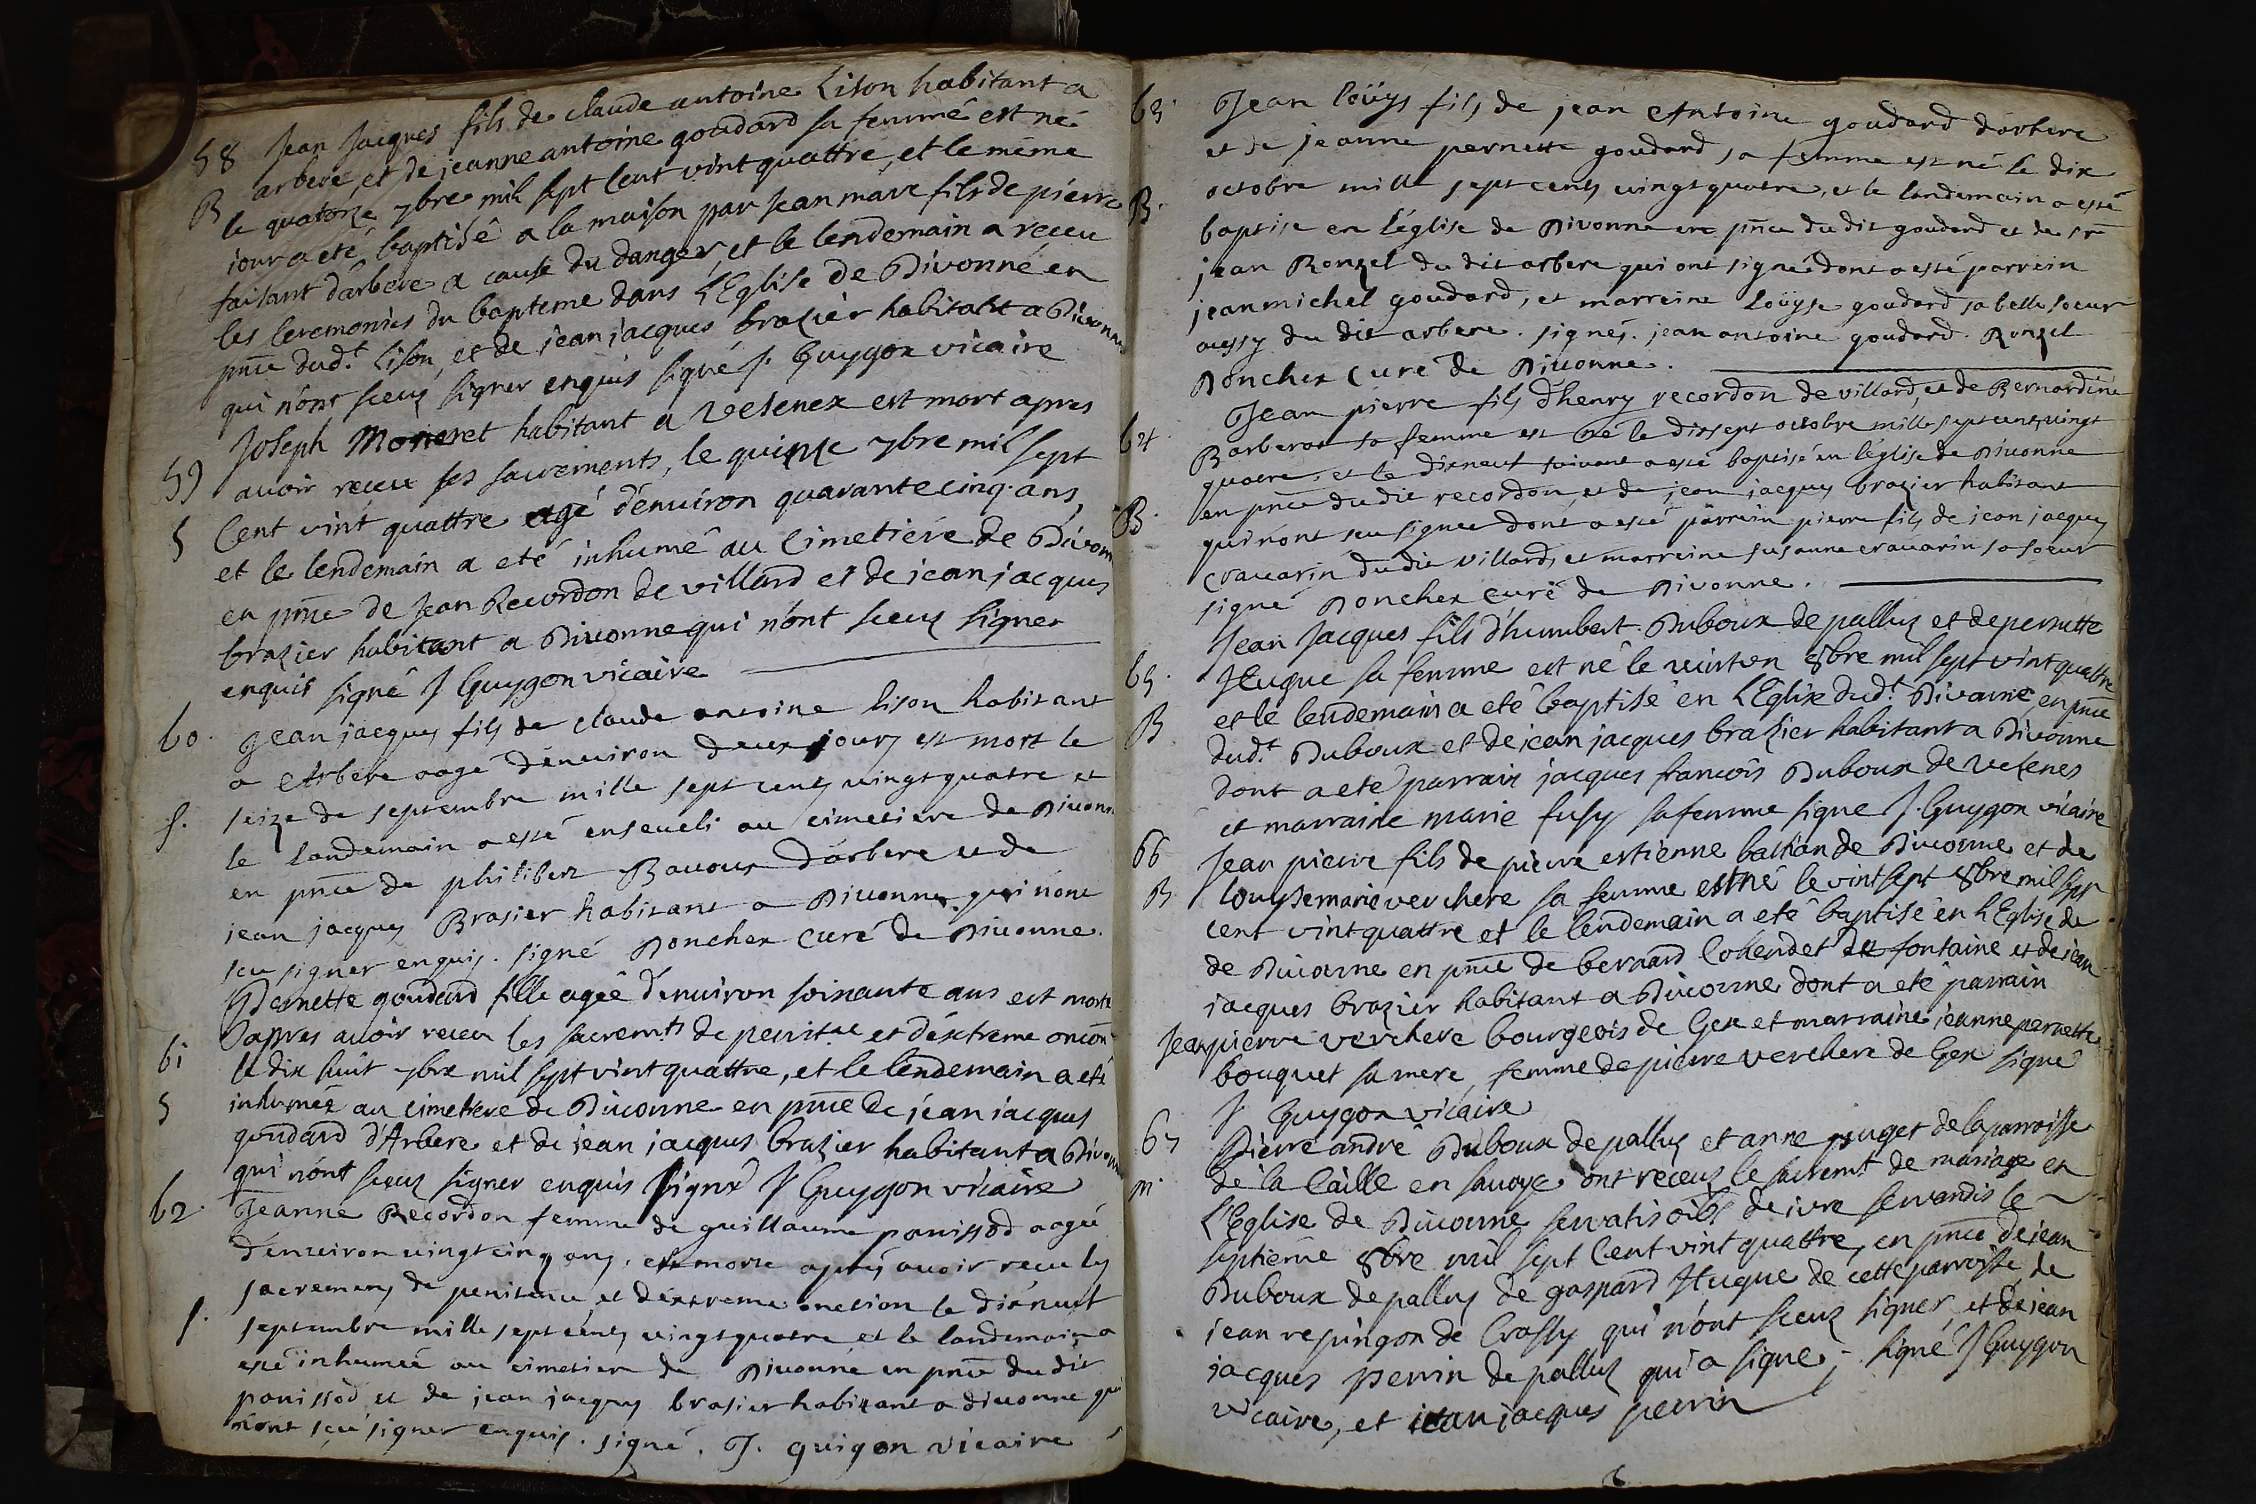 58 Jean Jacques fils de claude antoine Lison habitant a
B arbere, et de jeanne antoine goudard sa femme est né
le quatorze 7bre mil sept cent vint quattre, et le même
jour a eté baptisé a la maison par Jean marc fils de pierre
faisant d'arbere a cause du danger, et le lendemain a receu
les ceremonies du bapteme dans l'Eglise de Divonne en
pnce dudt. Lison, et de jean jacques brazier habitant a Divonne
qui n'ont sceuz signer enquis signé J. Guygon vicaire
Joseph Moneret habitant a Vesenex est mort apres
59 avoir receu ses sacrements, le quinze 7bre mil sept
S Cent vint quattre agé d'environ quarante cinq ans,
et le lendemain a eté inhumé au Cimetiere de Divonne
en pnce de Jean Recordon de villard et de jean jacques
brazier habitant a Divonne qui n'ont sceuz signer
enquis signé J Guygon vicaire
60. Jean jacques fils de claude antoine lison habitant
a Arbere aagé d'environ deux jours est mort le
S. seize de septembre mille sept cents vingt quatre et
le landemain a esté enseueli au cimetiere de Divonne
en pnce de philibert Bauoux d'arbere et de
jean jacques Brasier habitant a Divonne qui n'ont
seu signer enquis. signé Donchex Curé de Divonne.
Pernette goudard fille agée d'environ soixante ans est morte
apres avoir receu les sacremts de penitce et d'extreme onction
61 le dix huit 7bre mil sept vint quattre, et le lendemain a eté
S inhumée au cimetiere de Divonne en pnce de jean jacques
goudard d'Arbere et de jean jacques brazier habitant a Divonne
qui n'ont sceuz signer enquis signé J Guygon vicaire
62. Jeanne Recordon femme de guillaume panissod aagée
d'environ vingt cinq ans, est morte aprés avoir receu les
sacremens de penitence et d'extreme onction le dixneuf
S. septembre mille sept cents vingt quatre et le landemain a
esté inhumée au cimetiere de Divonne en pnce du dit
panissod et de jean jacques brasier habitant a divonne qui
n'ont sçeu signer enquis. signé. J. guigon vicaire
63. Jean loüys fils de jean Antoine goudard d'arbere
et de jeanne pernette goudard sa femme est né le dix
octobre mille sept cents vingt quatre, et le landemain a esté
B. baptisé en l'église de Divonne en pnce du dit goudard et de sr
jean Ronzel du dit arbere qui ont signé dont a esté parrein
jean michel goudard, et marreine Loüyse goudard sa belle soeur
aussy du dit arbere. signés. jean antoine goudard. Ronzel
Donchex Curé de Divonne.
Jean pierre fils d'henry recordon de villard, et de Bernardine
64. Barberat sa femme est né le dixsept octobre mille sept cents vingt
quatre, et le dixneuf suivant a esté baptisé en l'église de Divonne
en pnce du dit recordon, et de jean jacques brazier habitant
B. qui n'ont seu signer dont a esté parrein pierre fils de jean jacques
crauarin du dit villard, et marreine susanne crauarin sa soeur
signé Donchex curé de Divonne.
Jean Jacques fils d'humbert Duboux de palluz et de pernette
65. Hugue sa femme est né le vintun 8bre mil sept vint quattre
B et le lendemain a eté baptisé en l'Eglise dudt. Divonne en pnce
dudt Duboux et de jean jacques brazier habitant a Divonne
dont a eté parrain jacques francois Duboux de Vesenes
et marraine marie fusy sa femme signé J. Guygon vicaire
66 Jean pierre fils de pierre estienne bastian de Divonne et de
B Louyse marie verchere sa femme est né le vint sept 8bre mil sept
cent vint quattre et le lendemain a eté baptisé en l'Eglise de
de Divonne en pnce de bernard Cohendet de fontaine et de jean
jacques brazier habitant a Divonne dont a eté parrain
Jean pierre verchere bourgeois de Gex et marraine jeanne pernette
bouquet sa mere, femme de pierre verchere de Gex signé
J Guygon vicaire
67 Pierre andré Duboux de palluz et anne puget de la parroisse
m. de la Caille en savoye ont receuz le sacremt de mariage en
L'Eglise de Divonne servatis oibs de jure servandis le
septieme 8bre mil sept Cent vint quattre, en pnce de jean
Duboux de palluz de gaspard Hugue de cette parroisse, de
jean resingon de Crassy qui n'ont sceuz signer, et de jean
jacques perrin de palluz qui a signé; signé J Guygon
vicaire, et jean jacques perrin